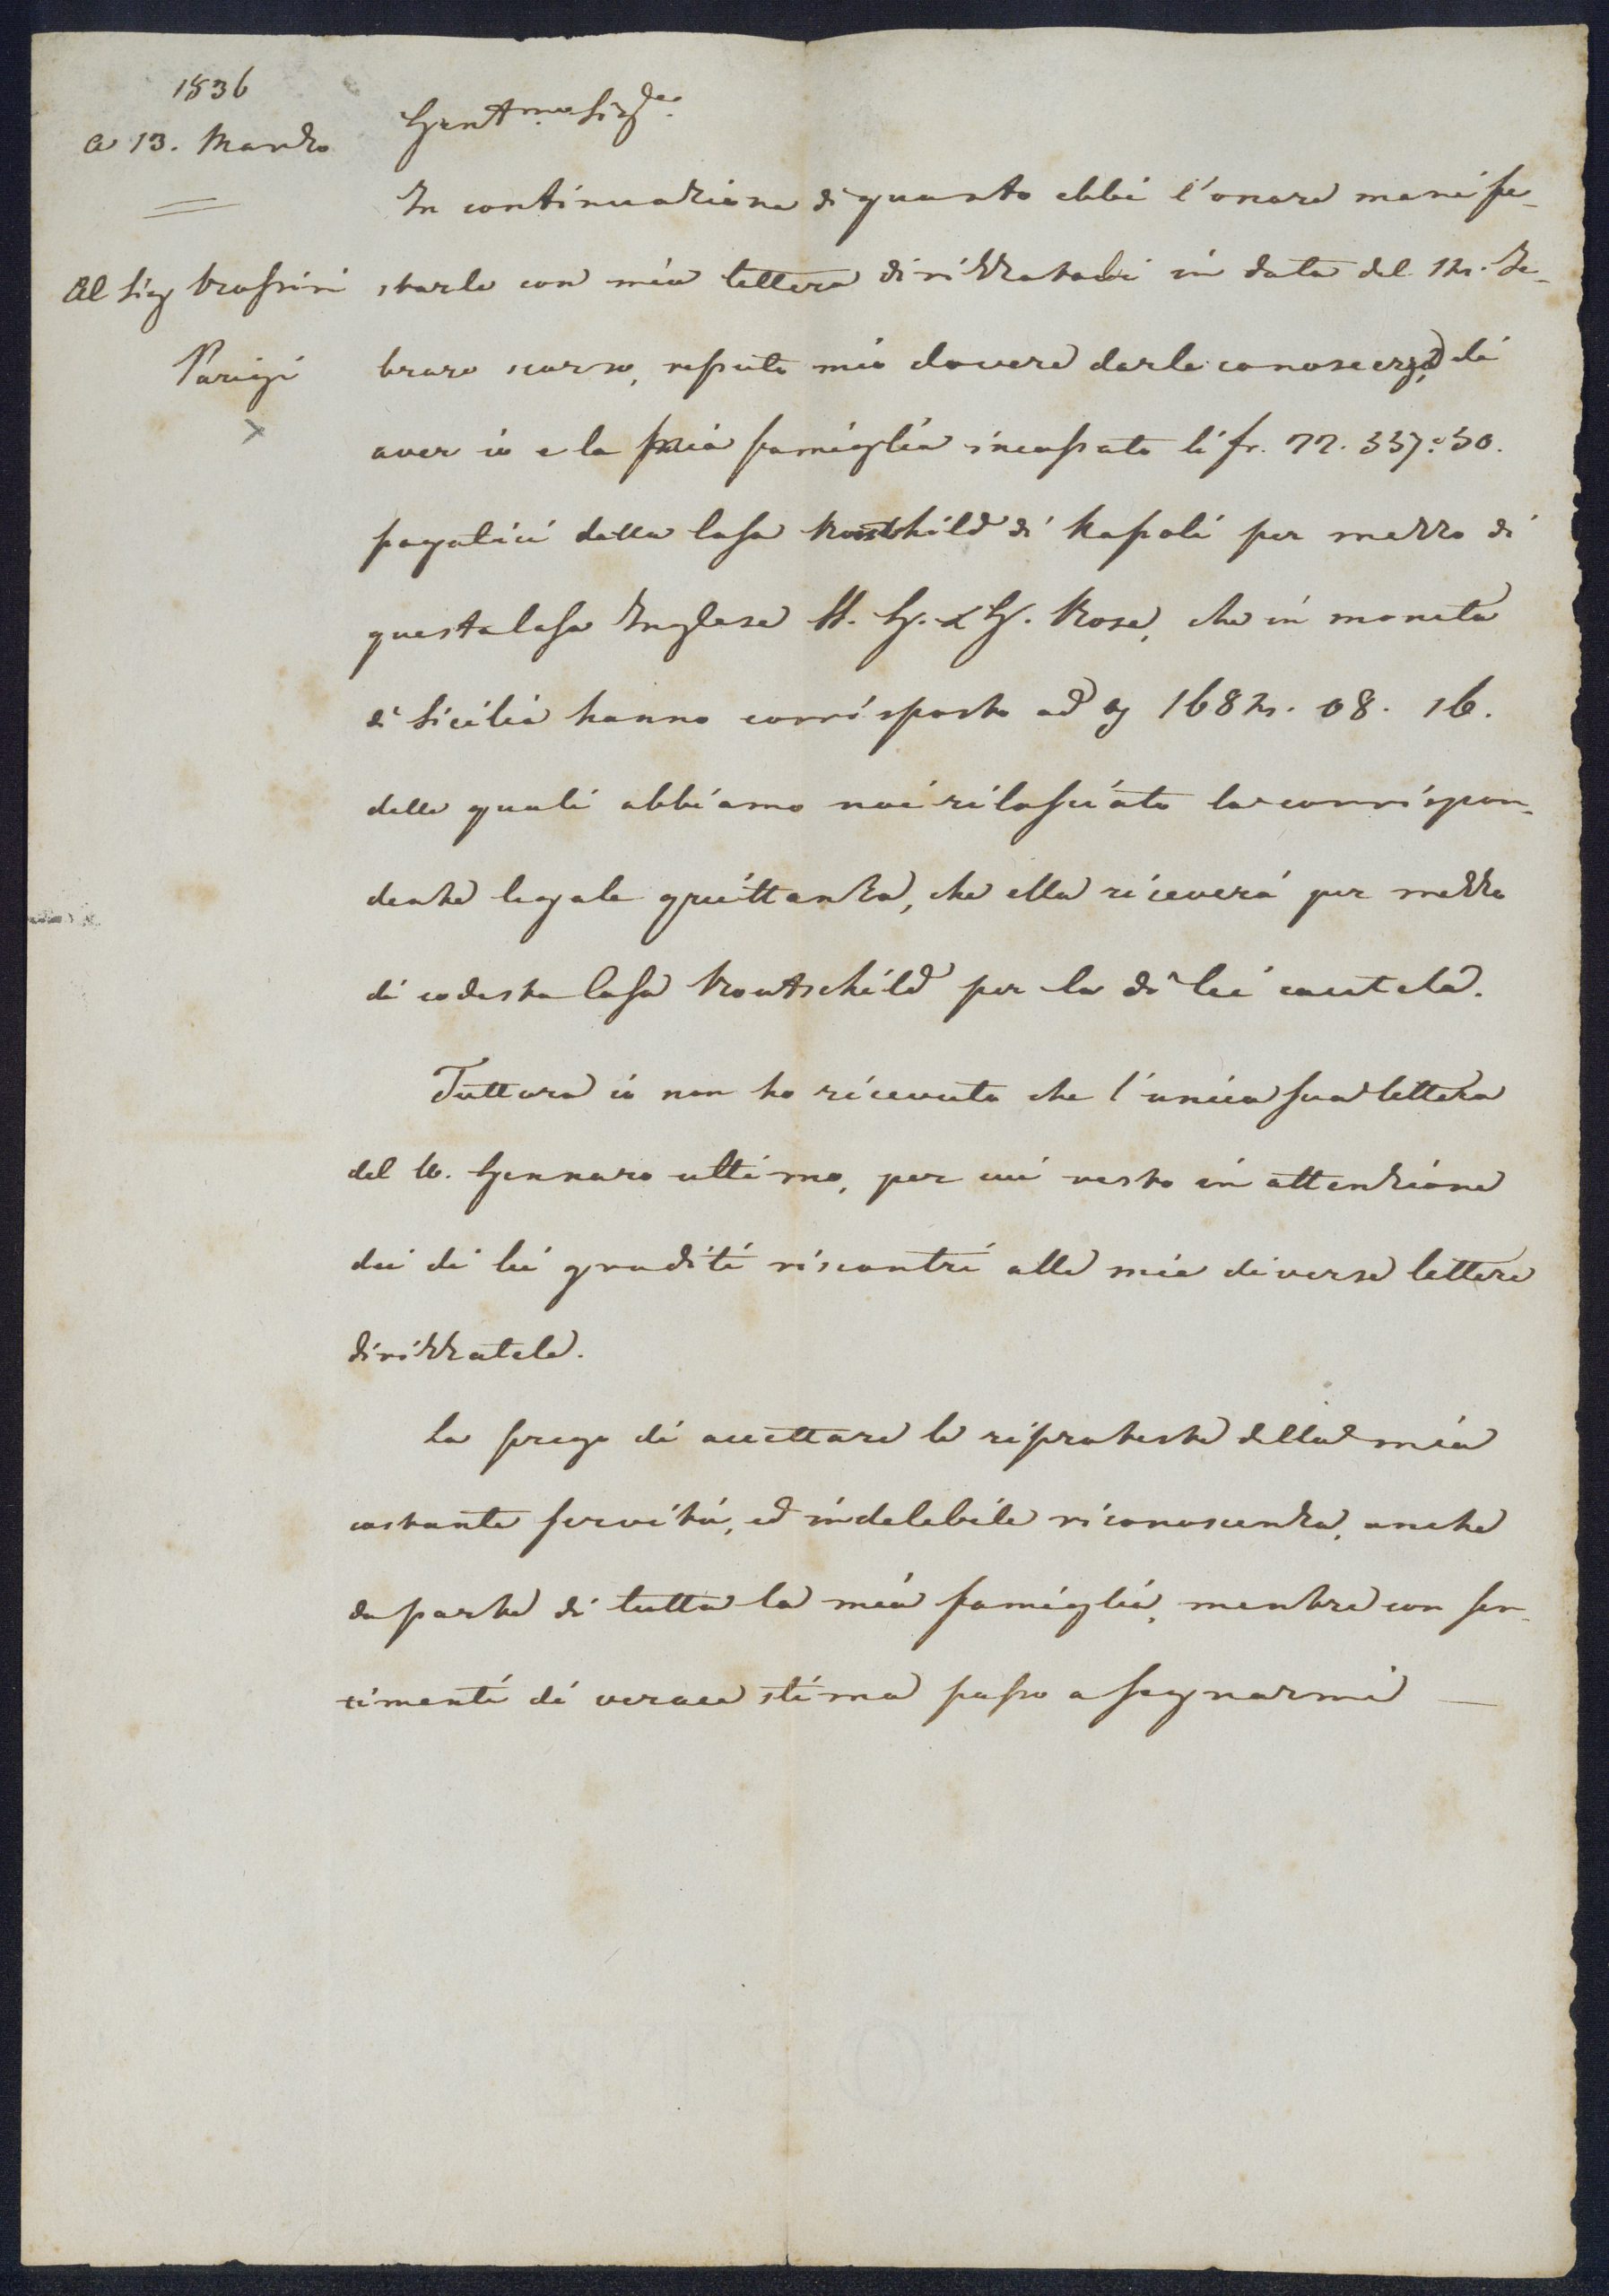 1836
a 13. Marzo
Al Sig Rossini
Parigi
Gent.mo Sig.re
In continuazione di quanto ebbi l'onore manife-
starle con mia lettera dirizzatale in data del 14. Fe-
braro scorso, reputo mio dovere darle conoscenza, di
aver io e la mia famiglia incassato li fr. 77. 337: 50.
pagatici dalla Casa Routschild di Napoli per mezzo di
questa Casa Inglese H. G. & G. Rose, che in moneta
di Sicilia hanno corrisposto ad 1684. 08. 16.
delle quali abbiamo noi rilasciato la corrispon-
dente legale quittanza, che ella riceverà per mezzo
di codesta Casa Routschild per la di lei cautela.
Tuttora io non ho ricevuto che l'unica sua lettera
del 16. Gennaro ultimo, per cui resto in attenzione
dei di lei graditi riscontri alle mie diverse lettere
dirizzatele.
La prego di accettare le riproteste della mia
costante servitù, ed indelebile riconoscenza, anche
da parte di tutta la mia famiglia, mentre con sen-
timenti di verace stima passo a segnarmi —